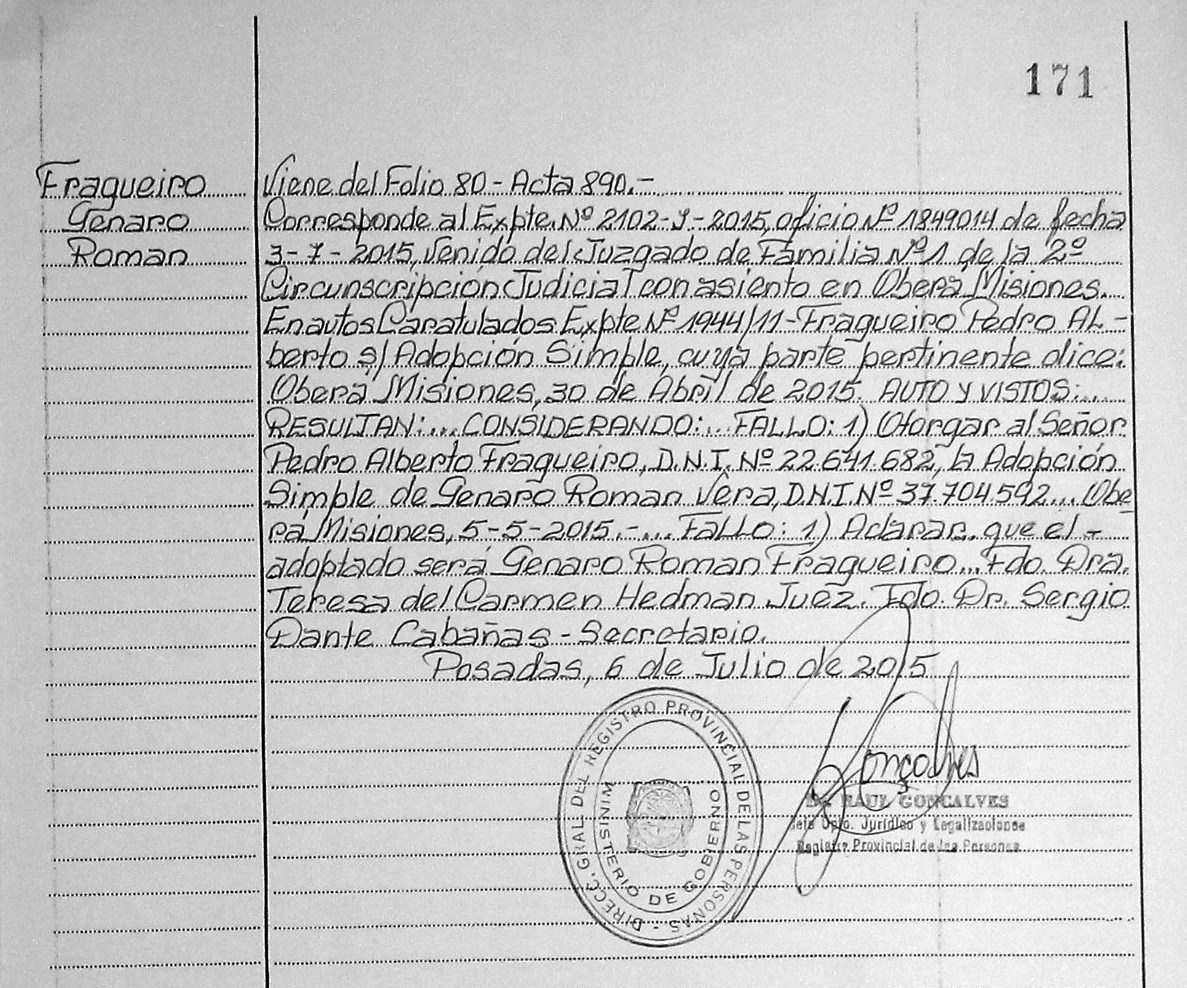 171
Fragueiro
Genaro
Roman
Viene del Folio 80 - Acta 890.-
Corresponde al Expte. Nº 2102-J-2015, oficio Nº 1849014 de fecha
3-7-2015, venido del Juzgado de Familia Nº 1 de la 2º
Circunscripción Judicial con asiento en Oberá Misiones.
En autos Caratulados Expte Nº 1944/11-Fragueiro Pedro AL-
berto s/ Adopción Simple, cuya parte pertinente dice:
Oberá Misiones, 30 de Abril de 2015. AUTO Y VISTOS:...
RESULTAN:... CONSIDERANDO:... FALLO: 1) Otorgar al Señor
Pedro Alberto Fragueiro, D.N.I. Nº 22.641.682, la Adopción
Simple de Genaro Roman Vera, D.N.I. Nº 37.704.592... Obe
rá Misiones, 5-5-2015.-... FALLO: 1) Aclarar, que el -
adoptado será Genaro Roman Fragueiro... Fdo. Dra.
Teresa del Carmen Hedman Juez. Fdo. Dr. Sergio
Dante Cabañas - Secretario.
Posadas, 6 de Julio de 2015
DIRECC. GRAL. DEL REGISTRO PROVINCIAL DE LAS PERSONAS -
MINISTERIO DE GOBIERNO
Gonçalves
Dr. RAUL GONCALVES
Jefe Dpto. Jurídico y Legalizaciones
Registro Provincial de las Personas